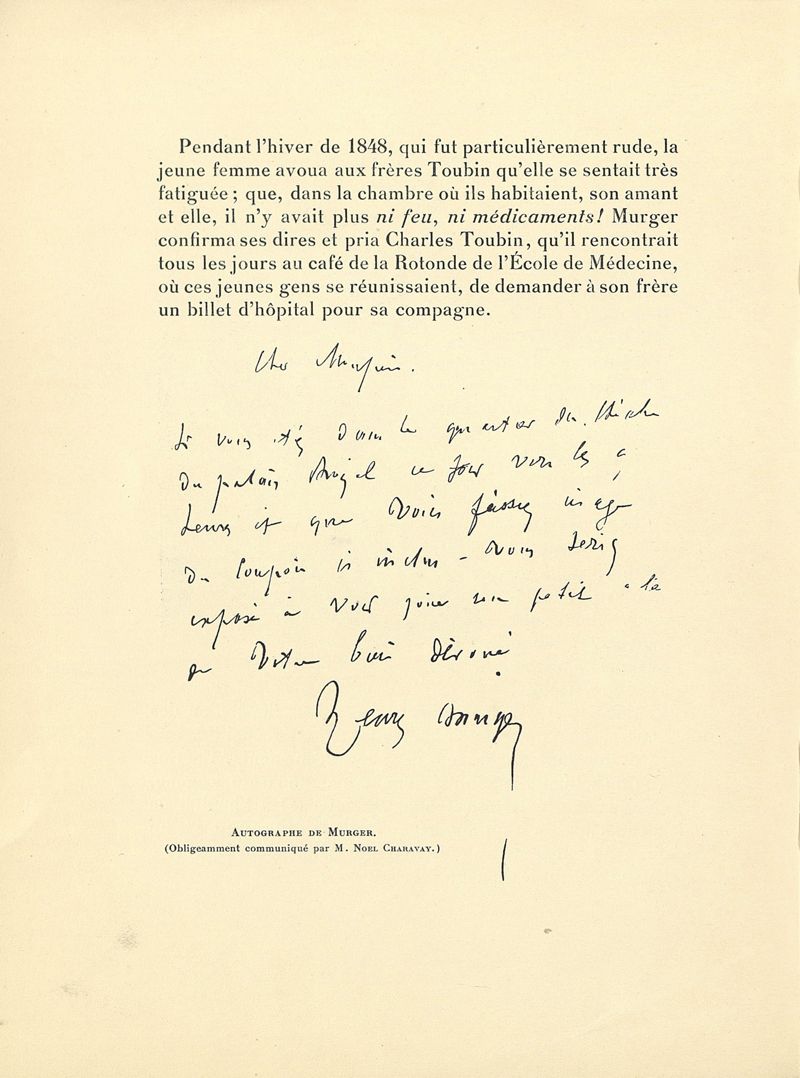 Pendant l'hiver de 1848, qui fut particulièrement rude, la
jeune femme avoua aux frères Toubin qu'elle se sentait très
fatiguée ; que, dans la chambre où ils habitaient, son amant
et elle, il n'y avait plus ni feu, ni médicaments! Murger
confirma ses dires et pria Charles Toubin, qu'il rencontrait
tous les jours au café de la Rotonde de l'École de Médecine,
où ces jeunes gens se réunissaient, de demander à son frère
un billet d'hôpital pour sa compagne.
Cher
Si vous êtes dans le quartier du
du palais Royal ce soir vers les 9
heures et que vous fassiez usage
du coupon ci inclus - vous seriez
exposé à vous un petit
votre bien dévoué
Henry Murger
AUTOGRAPHE DE MURGER.
(Obligeamment communiqué par M. NOEL CHARAVAY.)